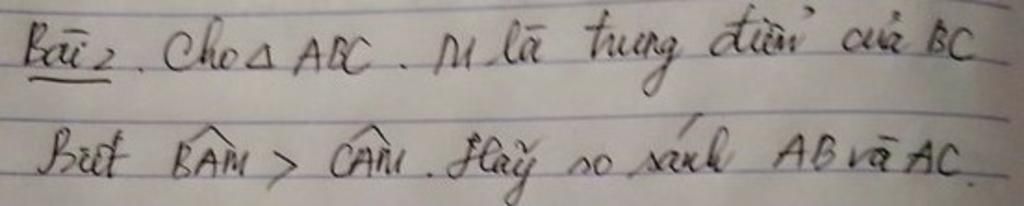 Bài 2. Cho Δ ABC. M là trung điểm của BC
Biết BAM > CAM. Hãy so sánh AB và AC.